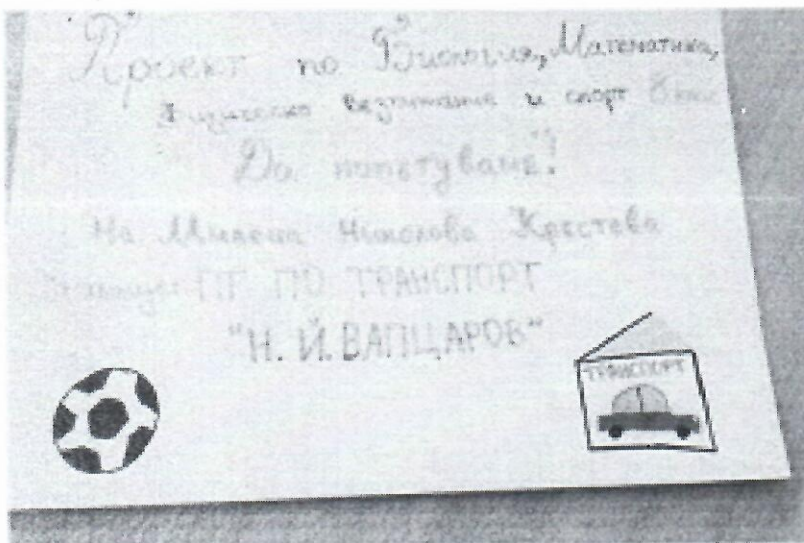 Проект по Биология, Математика,
Физическо възпитание и спорт
"Да попътуваме"!
На Николова Кръстева
ПГ ПО ТРАНСПОРТ
"Н. Й. ВАПЦАРОВ"
ТРАНСПОРТ